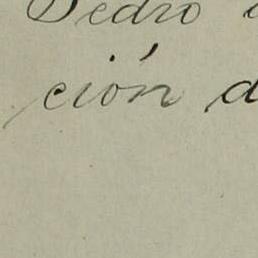 Pedro
ción d